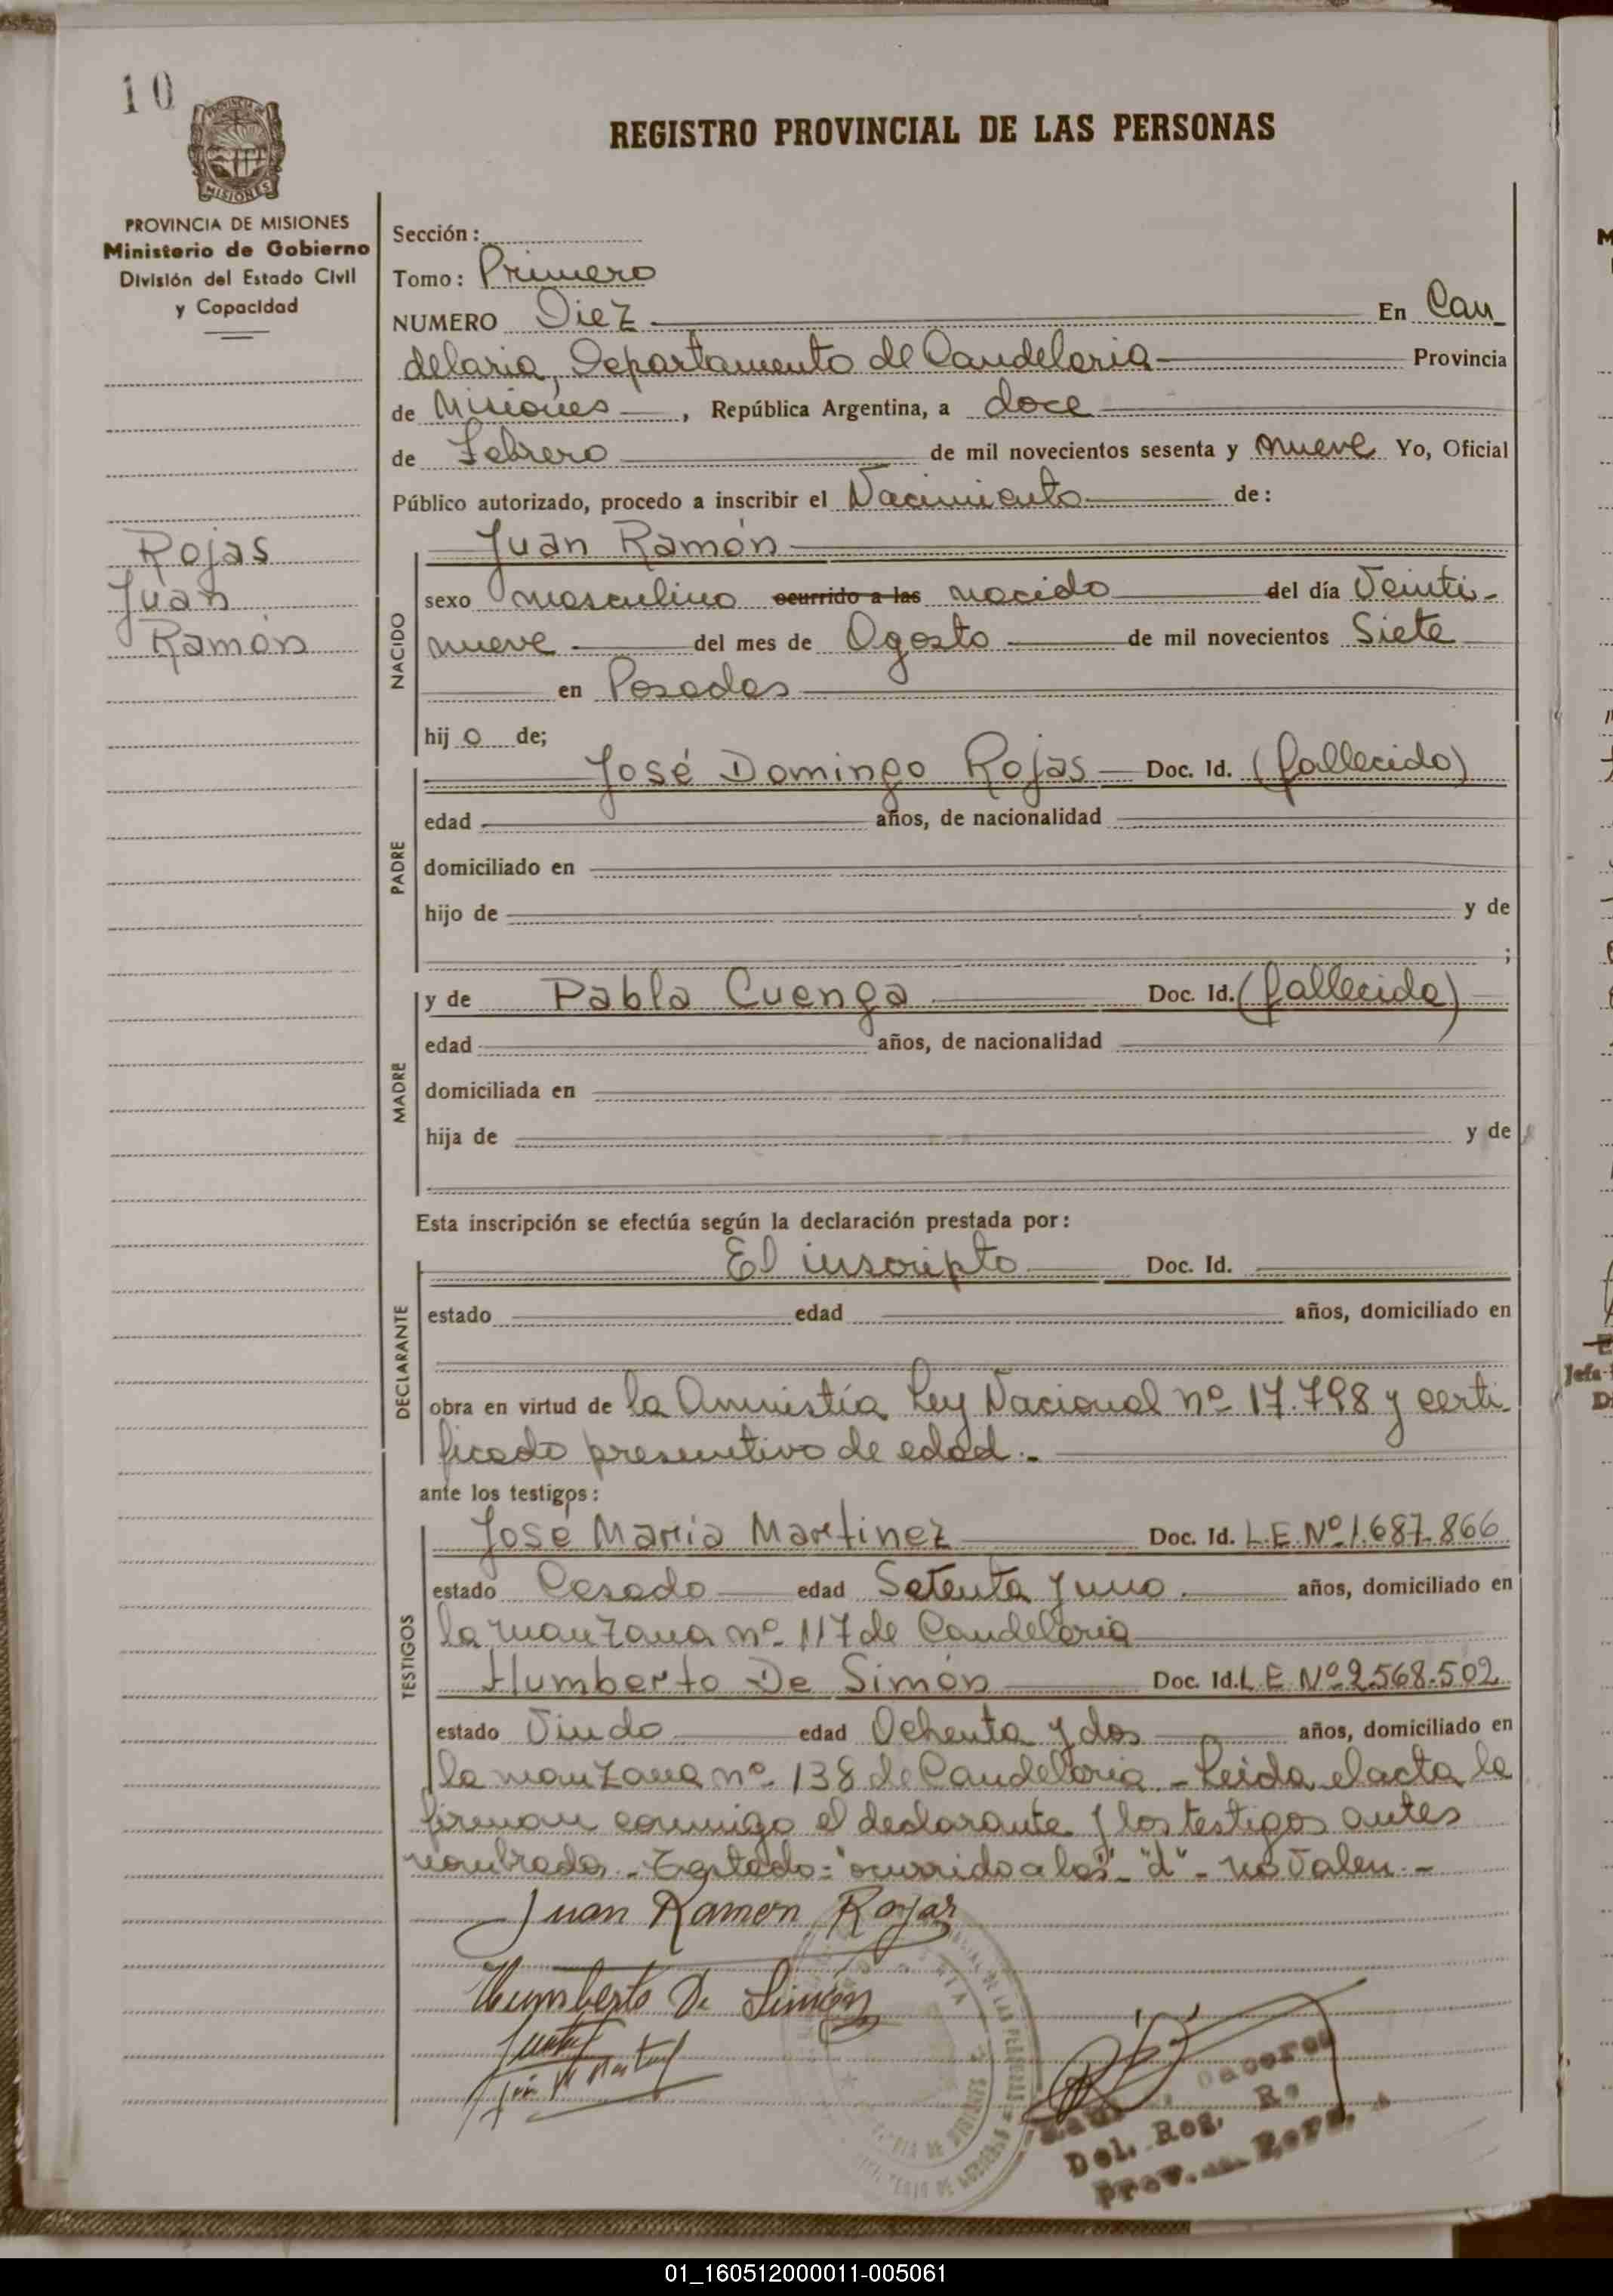 10
MISIONES
PROVINCIA DE MISIONES
Ministerio de Gobierno
División del Estado Civil
y Capacidad
Rojas
Juan
Ramón
REGISTRO PROVINCIAL DE LAS PERSONAS
Sección:
Tomo: Primero
NUMERO Diez En Can
delaria, Departamento de Candelaria Provincia
de Misiones, República Argentina, a doce
de Febrero de mil novecientos sesenta y nueve Yo, Oficial
Público autorizado, procedo a inscribir el Nacimiento de:
Juan Ramón
NACIDO
sexo masculino ocurrido a las nacido del día Veinti-
nueve del mes de Agosto de mil novecientos Siete
en Posadas
hijo de;
PADRE
José Domingo Rojas Doc. Id. (fallecido)
edad años, de nacionalidad
domiciliado en
hijo de y de
;
MADRE
y de Pabla Cuenga Doc. Id. (fallecida)
edad años, de nacionalidad
domiciliada en
hija de y de
Esta inscripción se efectúa según la declaración prestada por:
DECLARANTE
El inscripto Doc. Id.
estado edad años, domiciliado en
obra en virtud de la Amnistía Ley Nacional nº 17.798 y certi-
ficado presuntivo de edad.-
ante los testigos:
TESTIGOS
José María Martinez Doc. Id. L.E. Nº 1.687.866
estado Casado edad Setenta y uno años, domiciliado en
la manzana nº 117 de Candelaria
Humberto De Simón Doc. Id. L.E. Nº 2.568.502
estado Viudo edad Ochenta y dos años, domiciliado en
la manzana nº 138 de Candelaria - Leida el acta la
firman conmigo el declarante y los testigos antes
nombrados - Testado: "ocurrido a las" - "d" - no valen.-
Juan Ramon Rojas
Humberto D. Simón
Del. Reg. R.
Prov. Pers.
01_160512000011-005061